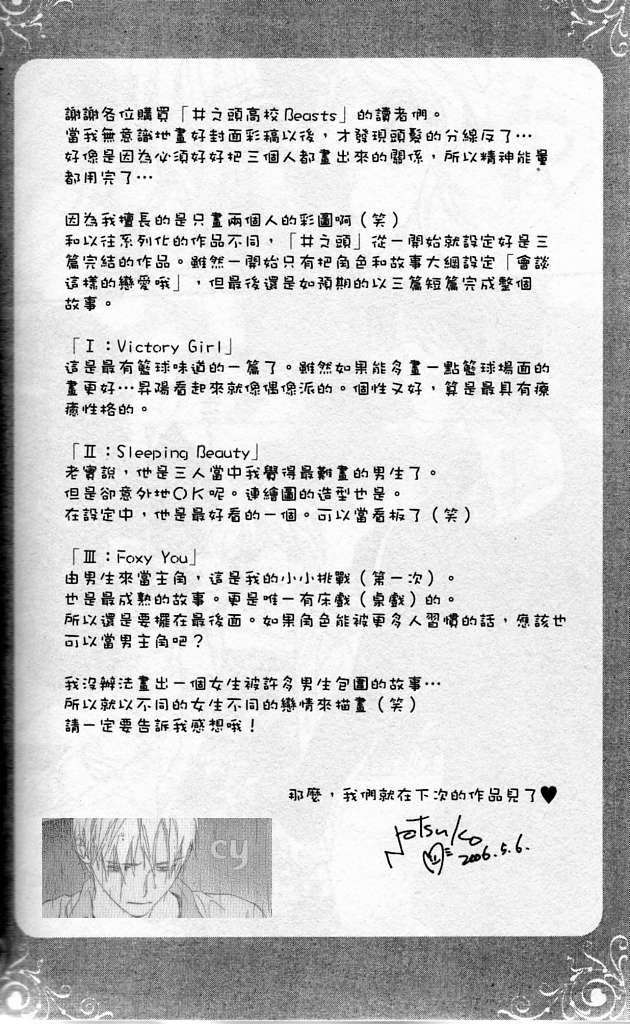 謝謝各位購買「井之頭高校Beasts」的讀者們。
當我無意識地畫好封面彩稿以後，才發現頭髮的分線反了…
好像是因為必須好好把三個人都畫出來的關係，所以精神能量
都用完了…
因為我擅長的是只畫兩個人的彩圖啊（笑）
和以往系列化的作品不同，「井之頭」從一開始就設定好是三
篇完結的作品。雖然一開始只有把角色和故事大綱設定「會談
這樣的戀愛哦」，但最後還是如預期的以三篇短篇完成整個
故事。
「Ⅰ：Victory Girl」
這是最有籃球味道的一篇了。雖然如果能多畫一點籃球場面的
畫更好…昇陽看起來就像偶像派的。個性又好，算是最具有療
癒性格的。
「Ⅱ：Sleeping Beauty」
老實說，他是三人當中我覺得最難畫的男生了。
但是卻意外地ＯＫ呢。連繪圖的造型也是。
在設定中，他是最好看的一個。可以當看板了（笑）
「Ⅲ：Foxy You」
由男生來當主角，這是我的小小挑戰（第一次）。
也是最成熟的故事。更是唯一有床戲（桌戲）的。
所以還是要擺在最後面。如果角色能被更多人習慣的話，應該也
可以當男主角吧？
我沒辦法畫出一個女生被許多男生包圍的故事…
所以就以不同的女生不同的戀情來描畫（笑）
請一定要告訴我感想哦！
那麼，我們就在下次的作品見了♥
Natsuko
2006.5.6.
cy